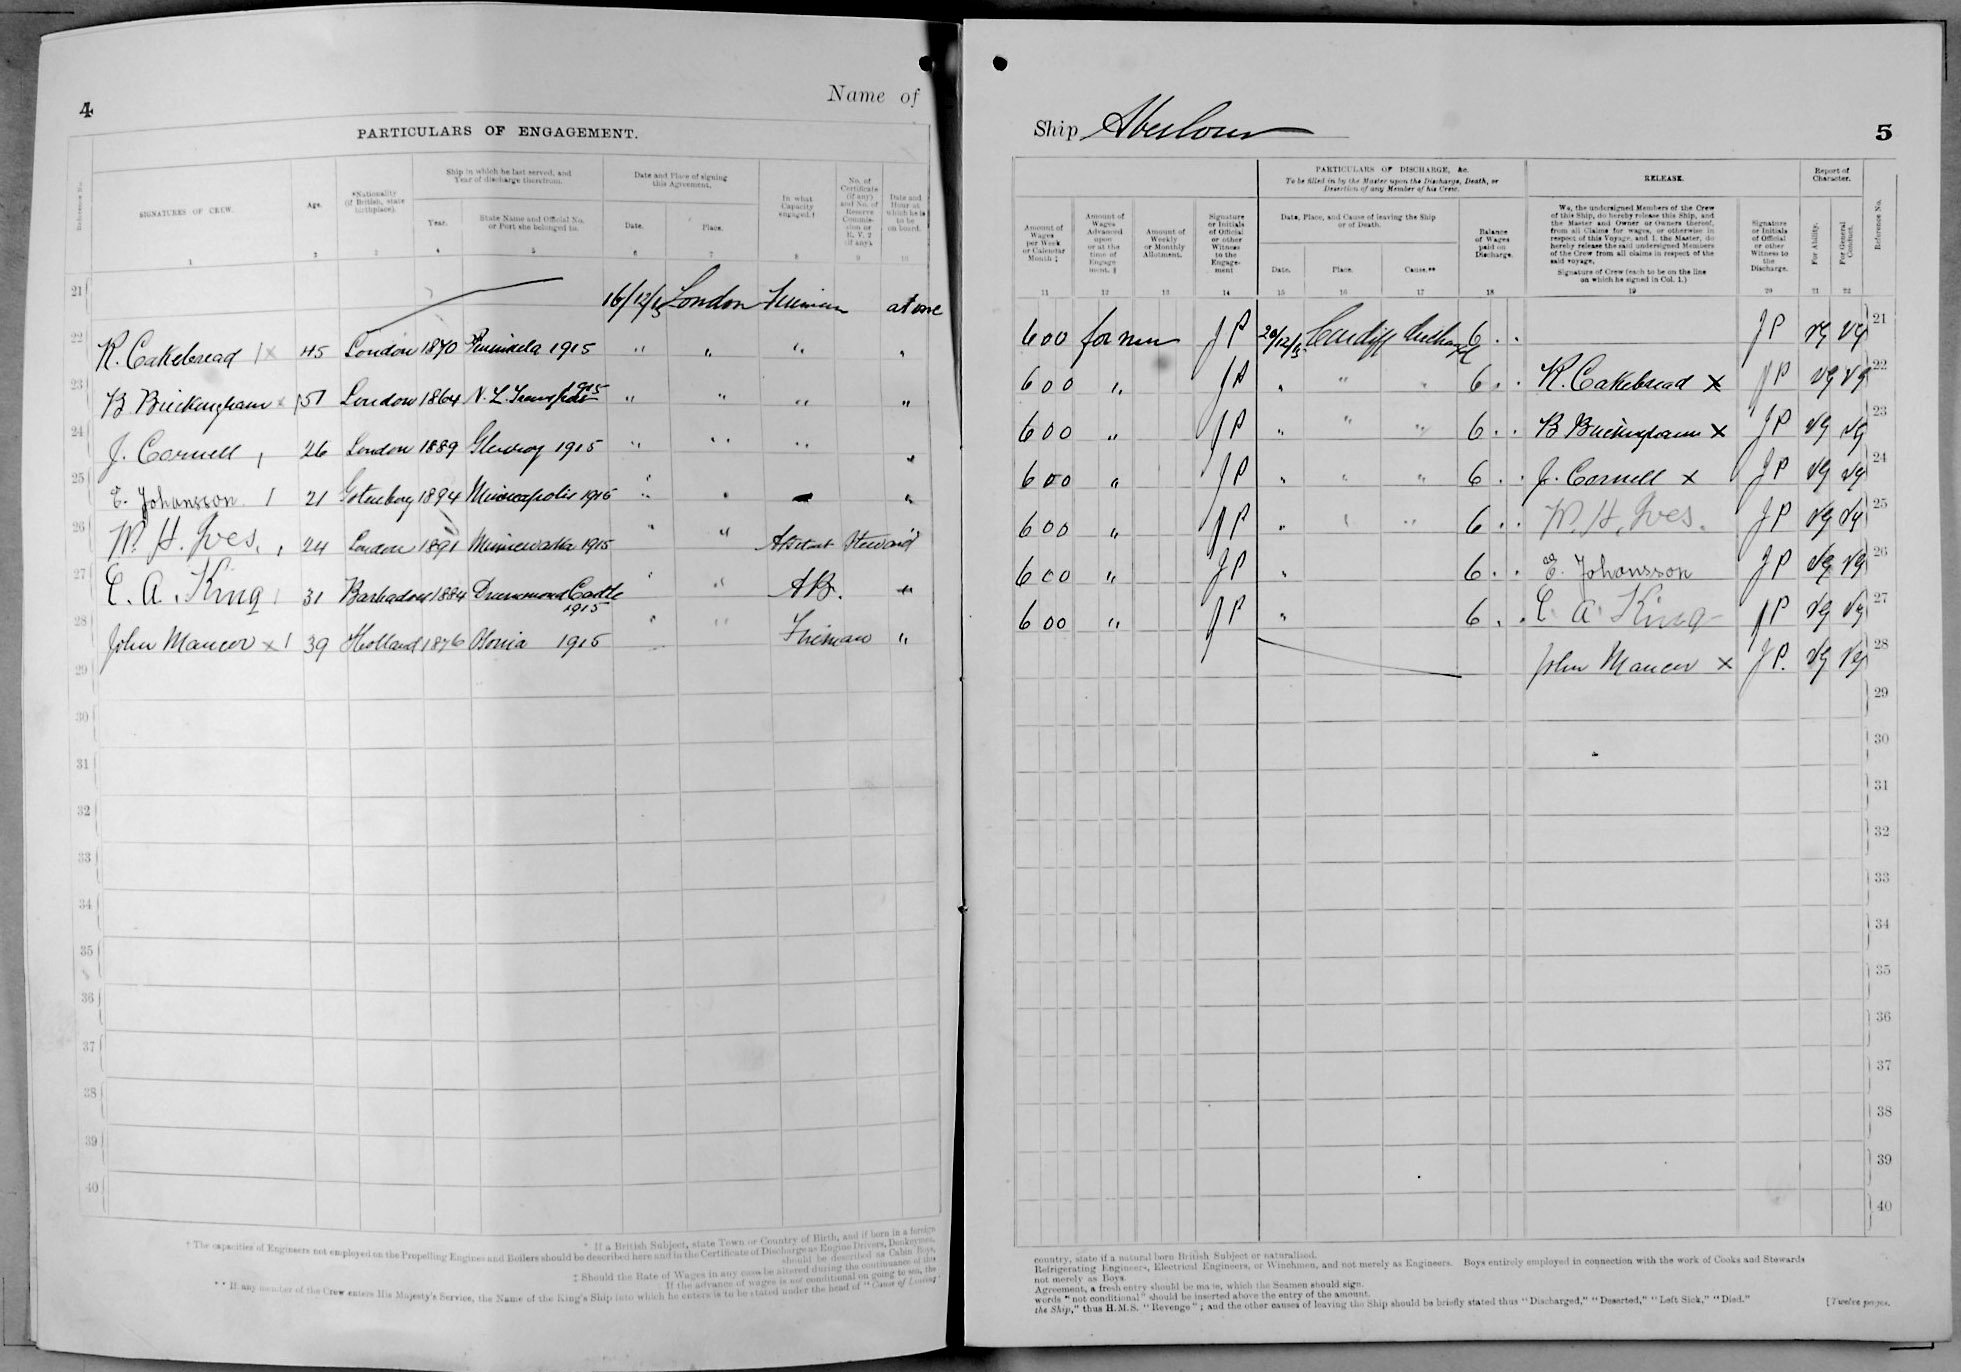 4
Name of
PARTICULARS OF ENGAGEMENT.
Reference No.
SIGNATURES OF CREW.
Age.
*Nationality
(if British, state
birthplace).
Ship in which he last served, and
Year of discharge therefrom.
Year.
State Name and Official No.
or Port she belonged to.
Date and Place of signing
this Agreement.
Date.
Place.
In what
Capacity
engaged.†
No. of
Certificate
(if any)
and No. of
Reserve
Commis-
sion or
R. V. 2
(if any).
Date and
Hour at
which he is
to be
on board.
1 2 3 4 5 6 7 8 9 10
21 16/12/15 London Fireman at once
22 R. Cakebread x 45 London 1870 Peninsula 1915 " " " "
23 B Buckingham x 51 London 1864 N. L. Transport 1915 " " " "
24 J. Cornell 26 London 1889 Glenroy 1915 " " " "
25 E. Johansson 21 Gotenborg 1894 Minneapolis 1915 " " "
26 W. H. Ives. 24 London 1891 Minnewaska 1915 " " Assistant Steward "
27 E. A. King 31 Barbadoes 1884 Drummond Castle 1915 " " A.B. "
28 John Mancer x 39 Holland 1876 1915 " " Fireman "
29
30
31
32
33
34
35
36
37
38
39
40
* If a British Subject, state Town or Country of Birth, and if born in a foreign
† The capacities of Engineers not employed on the Propelling Engines and Boilers should be described here and in the Certificate of Discharge as Engine Drivers, Donkeymen,
should be described as Cabin Boys,
‡ Should the Rate of Wages in any case be altered during the continuance of this
If the advance of wages is not conditional on going to sea, the
** If any member of the Crew enters His Majesty's Service, the Name of the King's Ship into which he enters is to be stated under the head of "Cause of Leaving
Ship Aberlour
5
PARTICULARS OF DISCHARGE, &c.
To be filled in by the Master upon the Discharge, Death, or
Desertion of any Member of his Crew.
RELEASE.
Report of
Character.
Amount of
Wages
per Week
or Calendar
Month ‡
Amount of
Wages
Advanced
upon
or at the
time of
Engage
ment. §
Amount of
Weekly
or Monthly
Allotment.
Signature
or Initials
of Official
or other
Witness
to the
Engage-
ment
Date, Place, and Cause of leaving the Ship
or of Death.
Date.
Place.
Cause.**
Balance
of Wages
paid on
Discharge.
We, the undersigned Members of the Crew
of this Ship, do hereby release this Ship, and
the Master and Owner or Owners thereof,
from all Claims for wages, or otherwise in
respect of this Voyage, and I, the Master, do
hereby release the said undersigned Members
of the Crew from all claims in respect of the
said voyage.
Signature of Crew (each to be on the line
on which he signed in Col. 1.)
Signature
or Initials
of Official
or other
Witness to
the
Discharge.
For Ability.
For General
Conduct.
Reference No.
11 12 13 14 15 16 17 18 19 20 21 22
6 00 for run J P 20/12/15 Cardiff discharged 6 . . J P VG VG 21
6 00 " J P " " " 6 . . R. Cakebread x J P VG VG 22
6 00 " J P " " " 6 . . B Buckingham x J P VG VG 23
6 00 " J P " " " 6 . . J. Cornell x J P VG VG 24
6 00 " J P " " " 6 . . W. H. Ives. J P VG VG 25
6 00 " J P " 6 . . E. Johansson J P VG VG 26
6 00 " J P " 6 . . E. A. King J P VG VG 27
John Mancer x J P. VG VG 28
29
30
31
32
33
34
35
36
37
38
39
40
country, state if a natural born British Subject or naturalised.
Refrigerating Engineers, Electrical Engineers, or Winchmen, and not merely as Engineers. Boys entirely employed in connection with the work of Cooks and Stewards
not merely as Boys.
Agreement, a fresh entry should be made, which the Seamen should sign.
words "not conditional" should be inserted above the entry of the amount.
the Ship," thus H.M.S. "Revenge"; and the other causes of leaving the Ship should be briefly stated thus "Discharged," "Deserted," "Left Sick," "Died."
[Twelve pages.